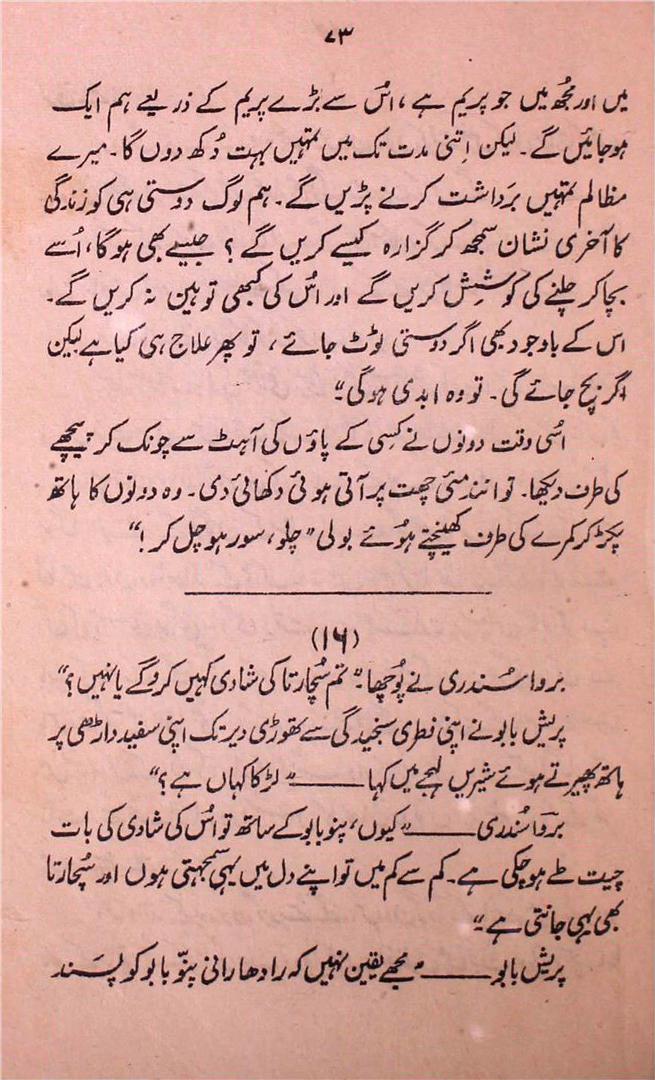 ۷۳
میں اور مُجھ میں جو پریم ہے، اُس سے بڑے پریم کے ذریعے ہم ایک
ہوجائیں گے۔ لیکن اِتنی مدت تک میں تمہیں بہت دُکھ دوں گا۔ میرے
مظالم تمہیں برَداشت کرنے پڑیں گے۔ ہم لوگ دوستی ہی کو زندگی
کا آخری نشان سمجھ کر گزارہ کیسے کریں گے؟ جیسے بھی ہوگا، اُسے
بچا کر چلنے کی کوشِش کریں گے اور اُس کی کبھی توہین نہ کریں گے۔
اس کے باوجود بھی اگر دوستی ٹوٹ جائے، تو پھر علاج ہی کیا ہے لیکن
اگر بچ جائے گی۔ تو وہ ابدی ہوگی“
اُسی وقت دونوں نے کِسی کے پاؤں کی آہٹ سے چونک کر پیچھے
کی طرف دیکھا۔ تو انندمئی چھت پر آتی ہوئی دکھائی دی۔ وہ دونوں کا ہاتھ
پکڑ کر کمرے کی طرف کھینچتے ہوُئے بولی ”چلو، سورہو چل کر!“
(۱۶)
بروا سُندری نے پُوچھا۔ ”تم سُچارتا کی شادی کہیں کروگے یا نہیں؟“
پریش بابو نے اپنی فطری سنجیدگی سے تھوڑی دیر تک اپنی سفید داڑھی پر
ہاتھ پھیرتے ہوئے شیریں لہجے میں کہا —— ”لڑکا کہاں ہے؟“
بروا سُندری —— ”کیوں، پنو بابو کے ساتھ تو اُس کی شادی کی بات
چیت طے ہوچکی ہے۔ کم سے کم میں تو اپنے دل میں یہی سمجھتی ہوں اور سُچارتا
بھی یہی جانتی ہے“
پریش بابو —— ”مجھے یقین نہیں کہ رادھا رانی پنّو بابو کو پسند